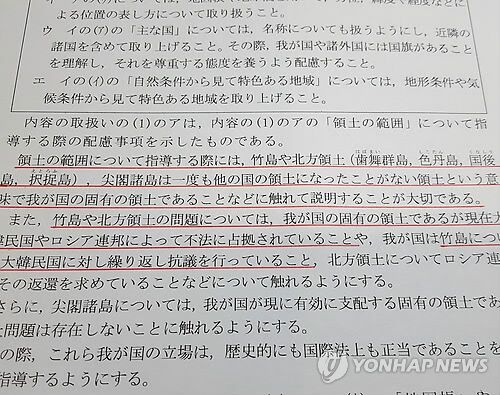 よる位置の表し方について取り扱うこと。
ウ イの(ア)の「主な国」については，名称についても扱うようにし，近隣の
諸国を含めて取り上げること。その際，我が国や諸外国には国旗があること
を理解し，それを尊重する態度を養うよう配慮すること。
エ イの(イ)の「自然条件から見て特色ある地域」については，地形条件や気
候条件から見て特色ある地域を取り上げること。
内容の取扱いの(1)のアは，内容の(1)のアの「領土の範囲」について指
導する際の配慮事項を示したものである。
領土の範囲について指導する際には，竹島や北方領土（歯舞群島，色丹島，国後
島，択捉島），尖閣諸島は一度も他の国の領土になったことがない領土という意
味で我が国の固有の領土であることなどに触れて説明することが大切である。
また，竹島や北方領土の問題については，我が国の固有の領土であるが現在大
韓民国やロシア連邦によって不法に占拠されていることや，我が国は竹島につ
大韓民国に対し繰り返し抗議を行っていること，北方領土についてロシア連
その返還を求めていることなどについて触れるようにする。
さらに，尖閣諸島については，我が国が現に有効に支配する固有の領土であ
問題は存在しないことに触れるようにする。
の際，これら我が国の立場は，歴史的にも国際法上も正当であることを
指導するようにする。
YONHAP NEWS